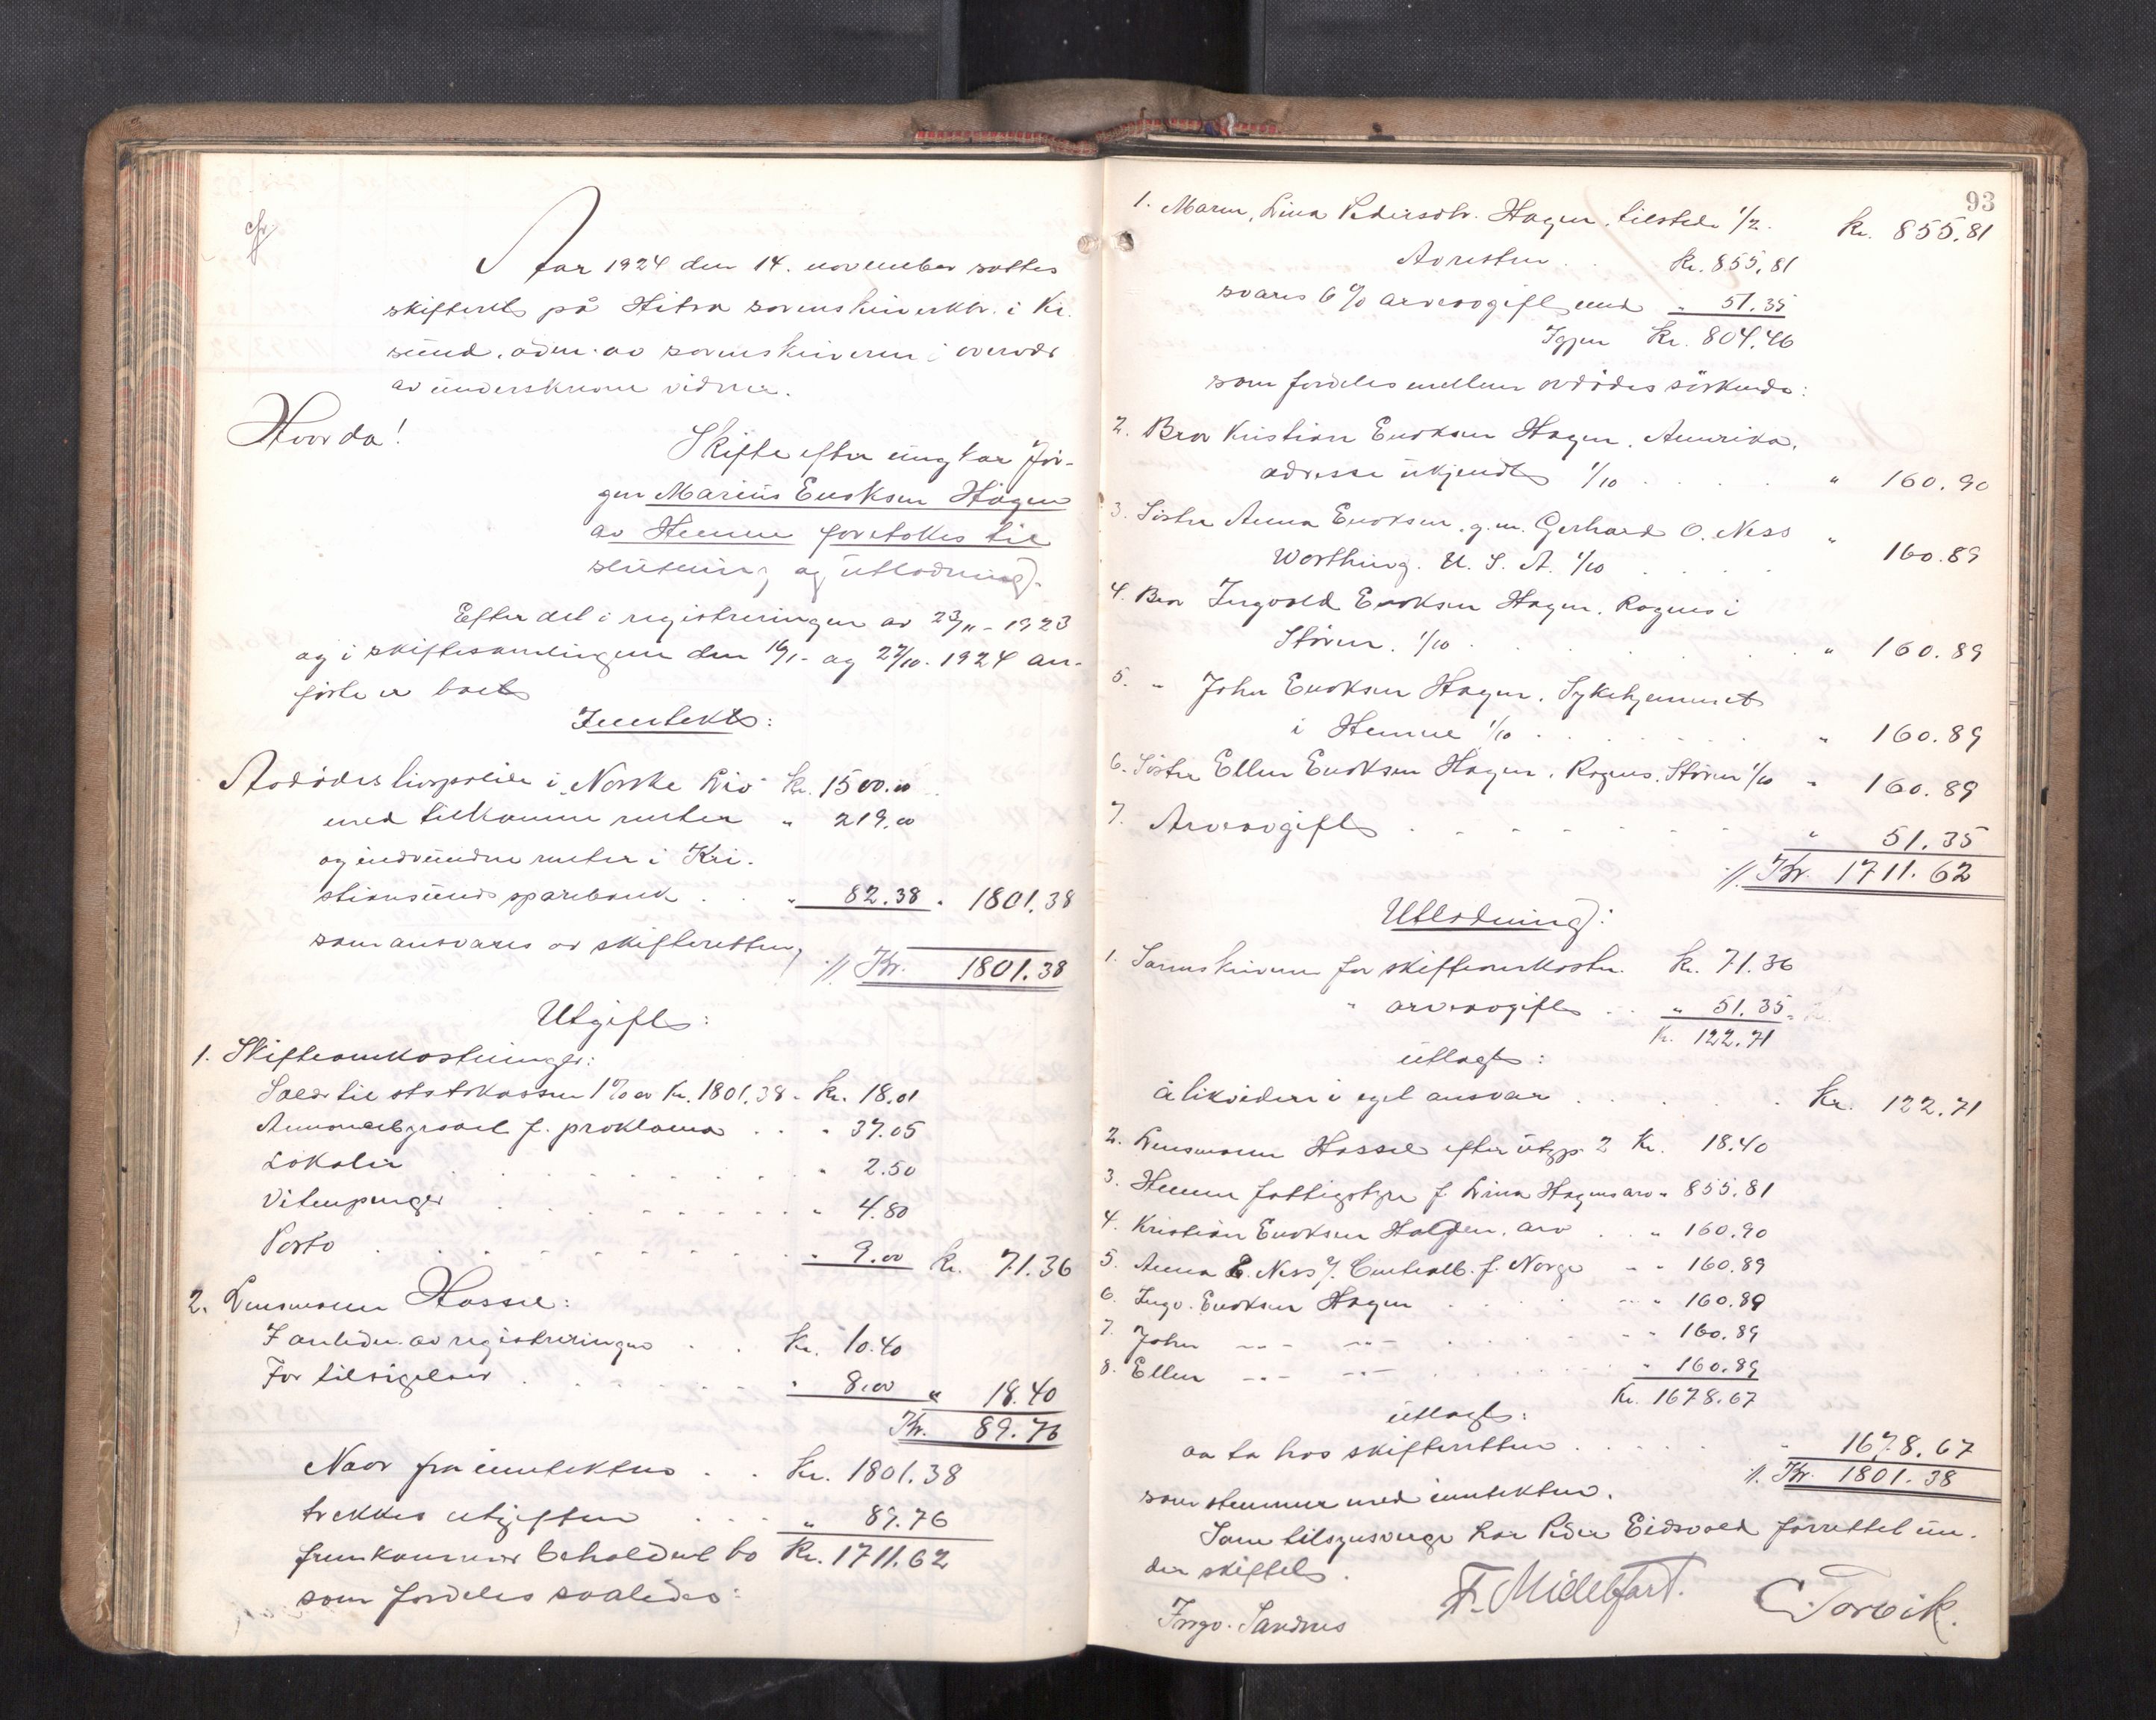 Aar 1924 den 14. november sattes
skifteret på Hitra sorenskriverktr. i Kr.
sund, adm. av sorenskriveren i overvær
av underskrevne vidner.
Hvorda!
Skifte efter ungkar Jør-
gen Marius Enoksen Hagen
av Hemne foretokes til
slutning og utlodning.
Efter det i registreringen av 23/11 - 1923
og i skiftesamlingene den 16/1- og 27/10. 1924 an-
førte er boets
Inntekt:
Avdødes livspolise i "Norske Liv" kr. 1500.00
med tilkomne renter " 219.00
og indvundne renter i Kri-
stiansunds sparebank . . " 82.38 " 1801.38
som ansvares av skifteretten, ://: Kr. 1801.38
Utgift:
1. Skifteomkostninger:
Salær til statskassen 1% av kr. 1801.38 - kr. 18.01
Annonceutgravel f. proklama . . " 37.05
Lokaler . . . " 2.50
Vitnepenger . . . " 4.80
Porto . . . " 9.00 kr. 71.36
2. Lensmann Hassel:
I anledn. av registreringen . . kr. 10.40
For tilsigelser . . . " 8.00 " 18.40
Kr. 89.76
Naar fra inntekten . . kr. 1801.38
trekkes utgiften . . . " 89.76
fremkommer beholdent bo kr. 1711.62
som fordeles saaledes:
93
1. Moren, Lina Pedersdtr. Hagen, tilstede 1/2. kr. 855.81
Av resten . . kr. 855.81
svares 6% arveavgift med " 51.35
Igjen kr. 804.46
som fordeles mellem avdødes søskende:
2. Bror Kristian Enoksen Hagen, Amerika,
adresse ukjendt 1/10 . . . " 160.90
3. Søster Anna Enoksen, g.m. Gerhard O. Ness
Worthing. U. S. A. 1/10 . . . " 160.89
4. Bror Ingvald Enoksen Hagen, Rognes i
Støren. 1/10 . . . " 160.89
5. " John Enoksen Hagen, Sykehjemmet
i Hemne 1/10 . . . " 160.89
6. Søster Ellen Enoksen Hagen, Rognes, Støren 1/10 " 160.89
7. Arveavgift . . . " 51.35
://: Kr. 1711.62
Utlodning:
1. Sorenskriveren for skifteomkostn. kr. 71.36
" arveavgift . . " 51.35
kr. 122.71
utlagt:
å likvidere i eget ansvar . . . kr. 122.71
2. Lensmann Hassel efter utgp. 2 kr. 18.40
3. Hemne fattigstyre f. Lina Hagens arv " 855.81
4. Kristian Enoksen Hagen, arv . . " 160.90
5. Anna E. Ness v/. Centralb. f. Norge " " 160.89
6. Ingv. Enoksen Hagen . . . " 160.89
7. John -"- -"- . . . " 160.89
8. Ellen -"- -"- . . . " 160.89
kr. 1678.67
utlagt:
aa ta hos skifteretten . . . " 1678.67
://: Kr. 1801.38
som stemmer med inntekten.
Som tilsynsverge har Peder Eidsvold forrettet un-
der skiftet.
Ingv. Sandnes F. Midelfart. C. Torvik.